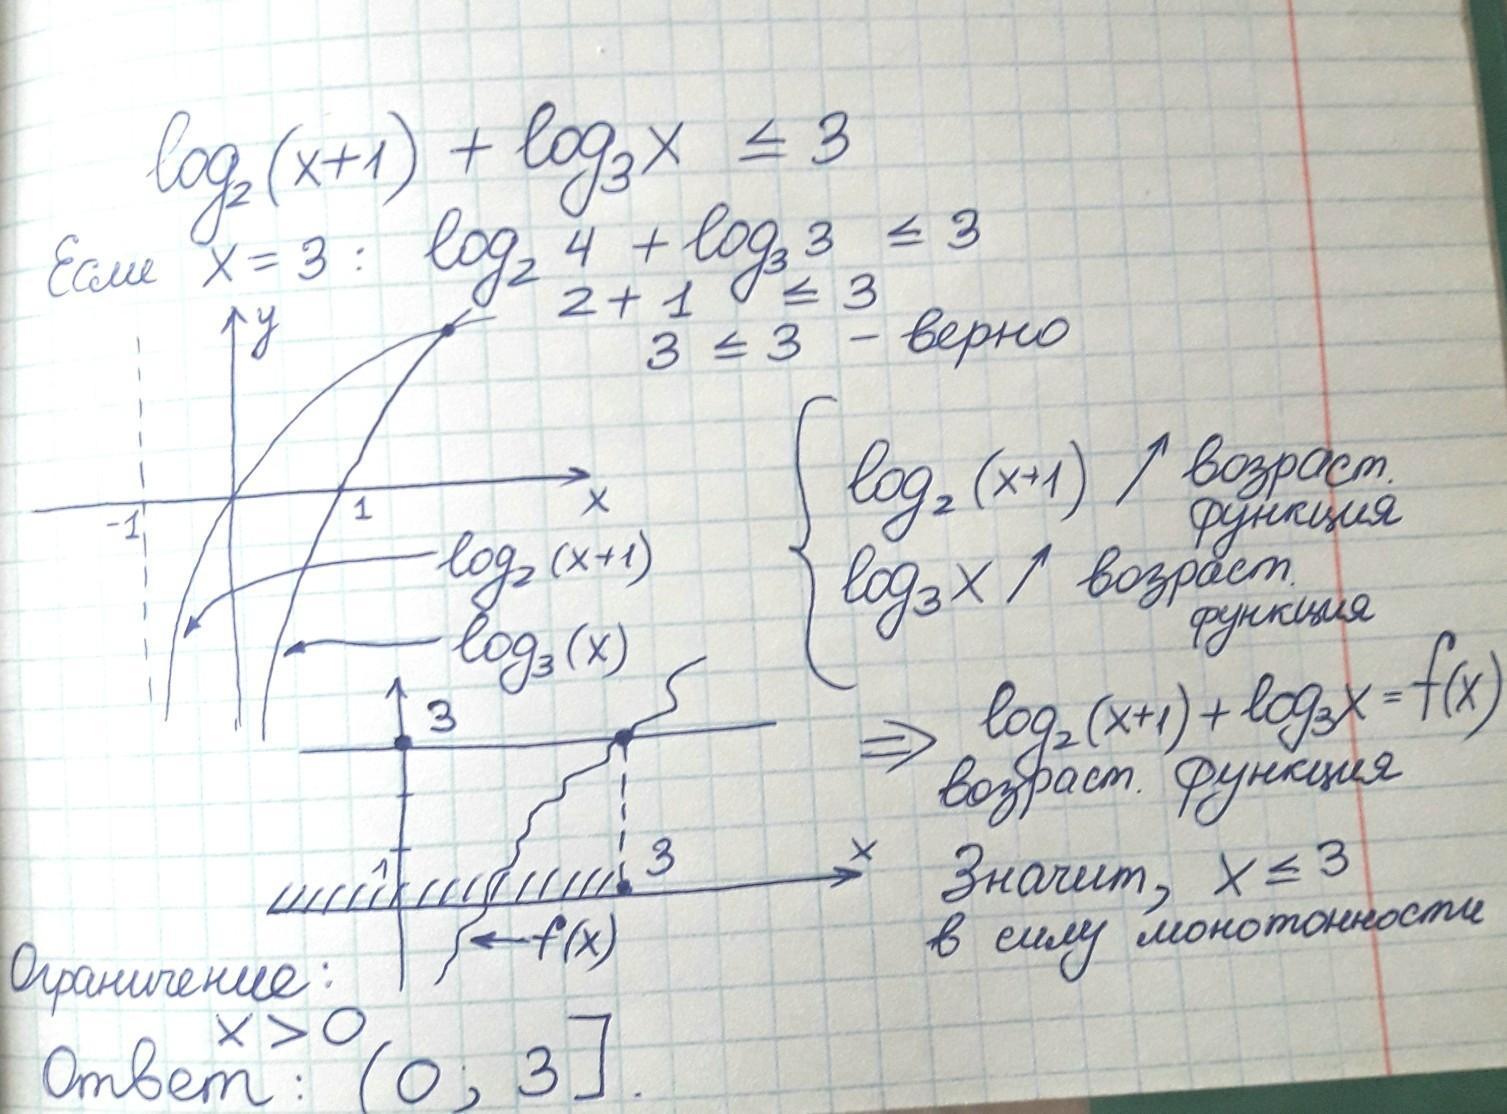 log₂(x+1) + log₃x ≤ 3
Если x = 3 : log₂ 4 + log₃ 3 ≤ 3
2 + 1 ≤ 3
3 ≤ 3 - верно
y
x
-1
1
log₂(x+1)
log₃(x)
log₂(x+1) ↗ возраст.
функция
log₃x ↗ возраст.
функция
⇒ log₂(x+1) + log₃x = f(x)
возраст. функция
Значит, x ≤ 3
в силу монотонности
3
1
3
x
f(x)
Ограничение:
x > 0
Ответ: (0; 3].